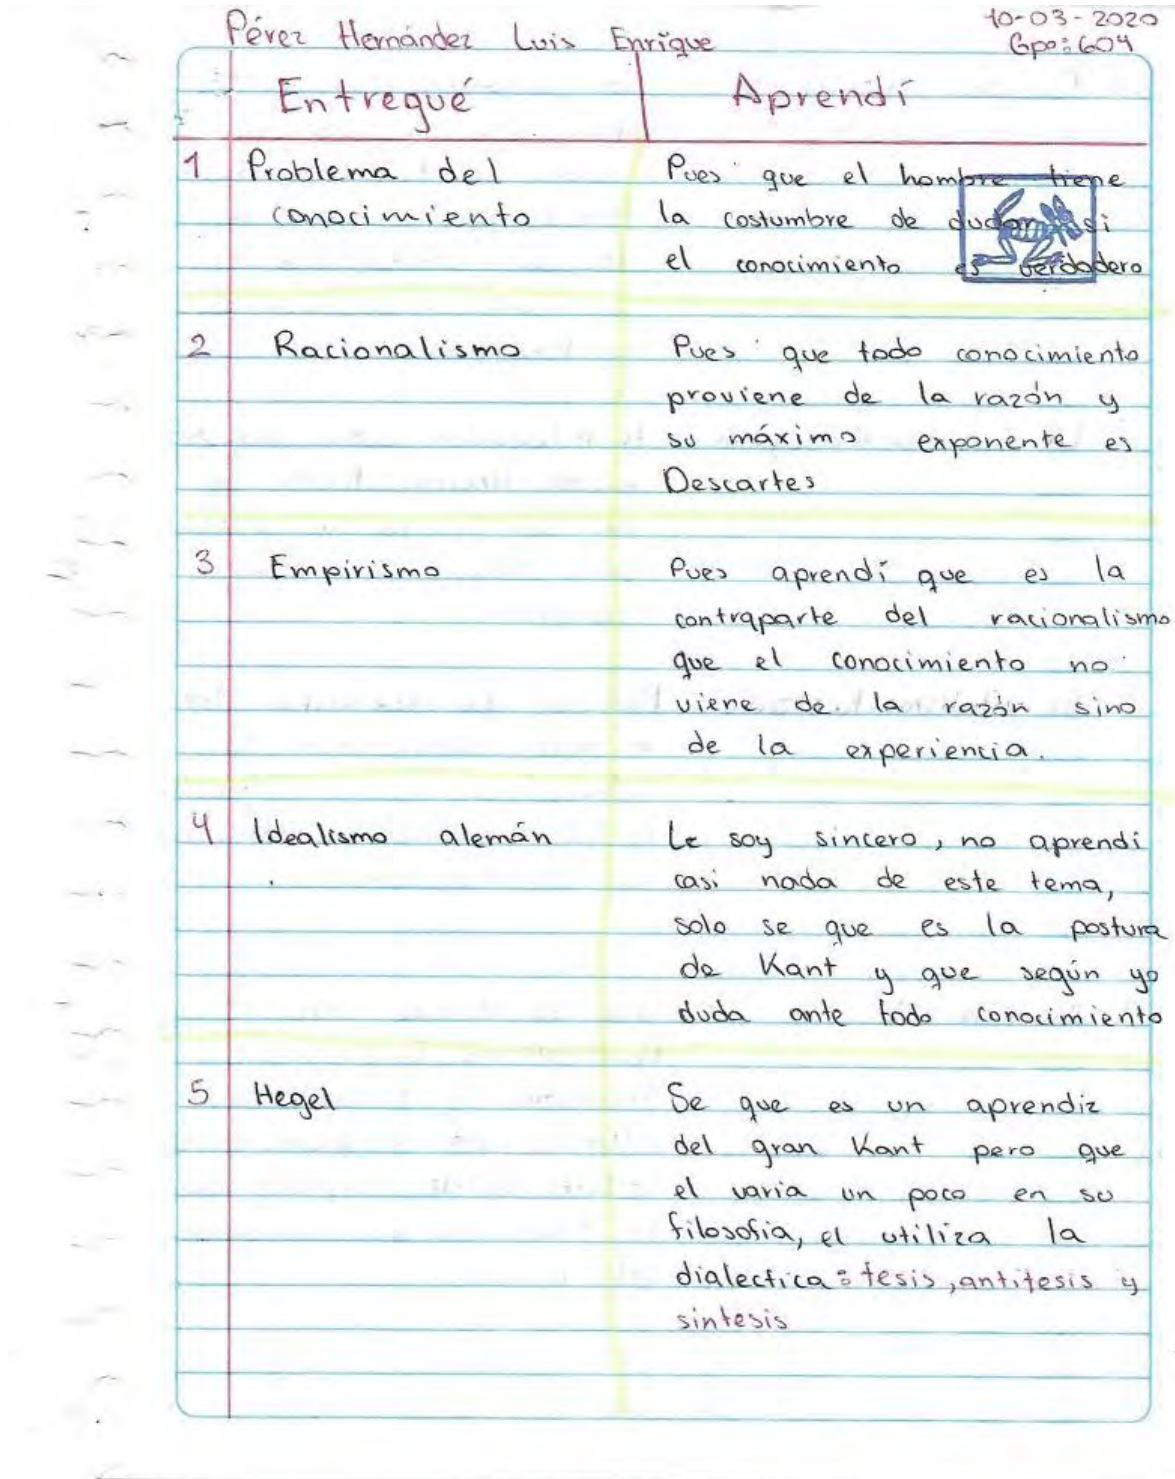 Pérez Hernández Luis Enrique
10-03-2020
Gpo: 604
Entregué
Aprendí
1 Problema del
conocimiento
Pues que el hombre tiene
la costumbre de dudar si
el conocimiento es verdadero
2 Racionalismo
Pues que todo conocimiento
proviene de la razón y
su máximo exponente es
Descartes
3 Empirismo
Pues aprendí que es la
contraparte del racionalismo
que el conocimiento no
viene de la razón sino
de la experiencia.
4 Idealismo alemán
Le soy sincero, no aprendí
casi nada de este tema,
solo se que es la postura
de Kant y que según yo
duda ante todo conocimiento
5 Hegel
Se que es un aprendiz
del gran Kant pero que
el varia un poco en su
filosofia, el utiliza la
dialectica: tesis, antitesis y
sintesis